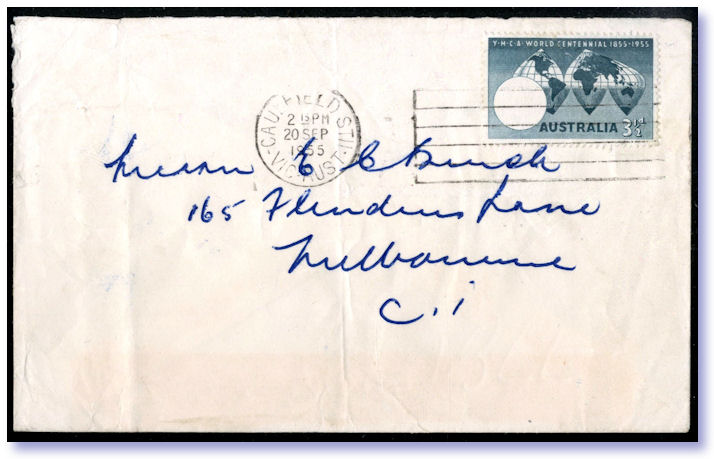 Y·M·C·A·WORLD CENTENNIAL 1855-1955
AUSTRALIA 3½d
CAULFIELD STH
2 15 PM
20 SEP
1955
VIC-AUST
Messrs E C
165 Flinders Lane
Melbourne
C.1